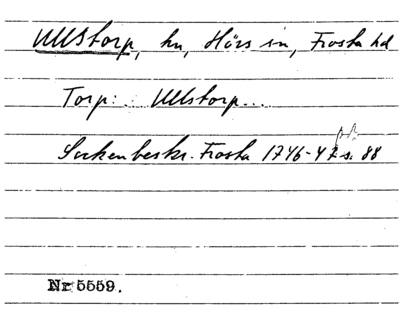 Ullstorp, hn, Hörs sn, Frosta hd
Torp: Ullstorp...
Sockenbeskr. Frosta 1746-47 s. 88
Nr 5559.